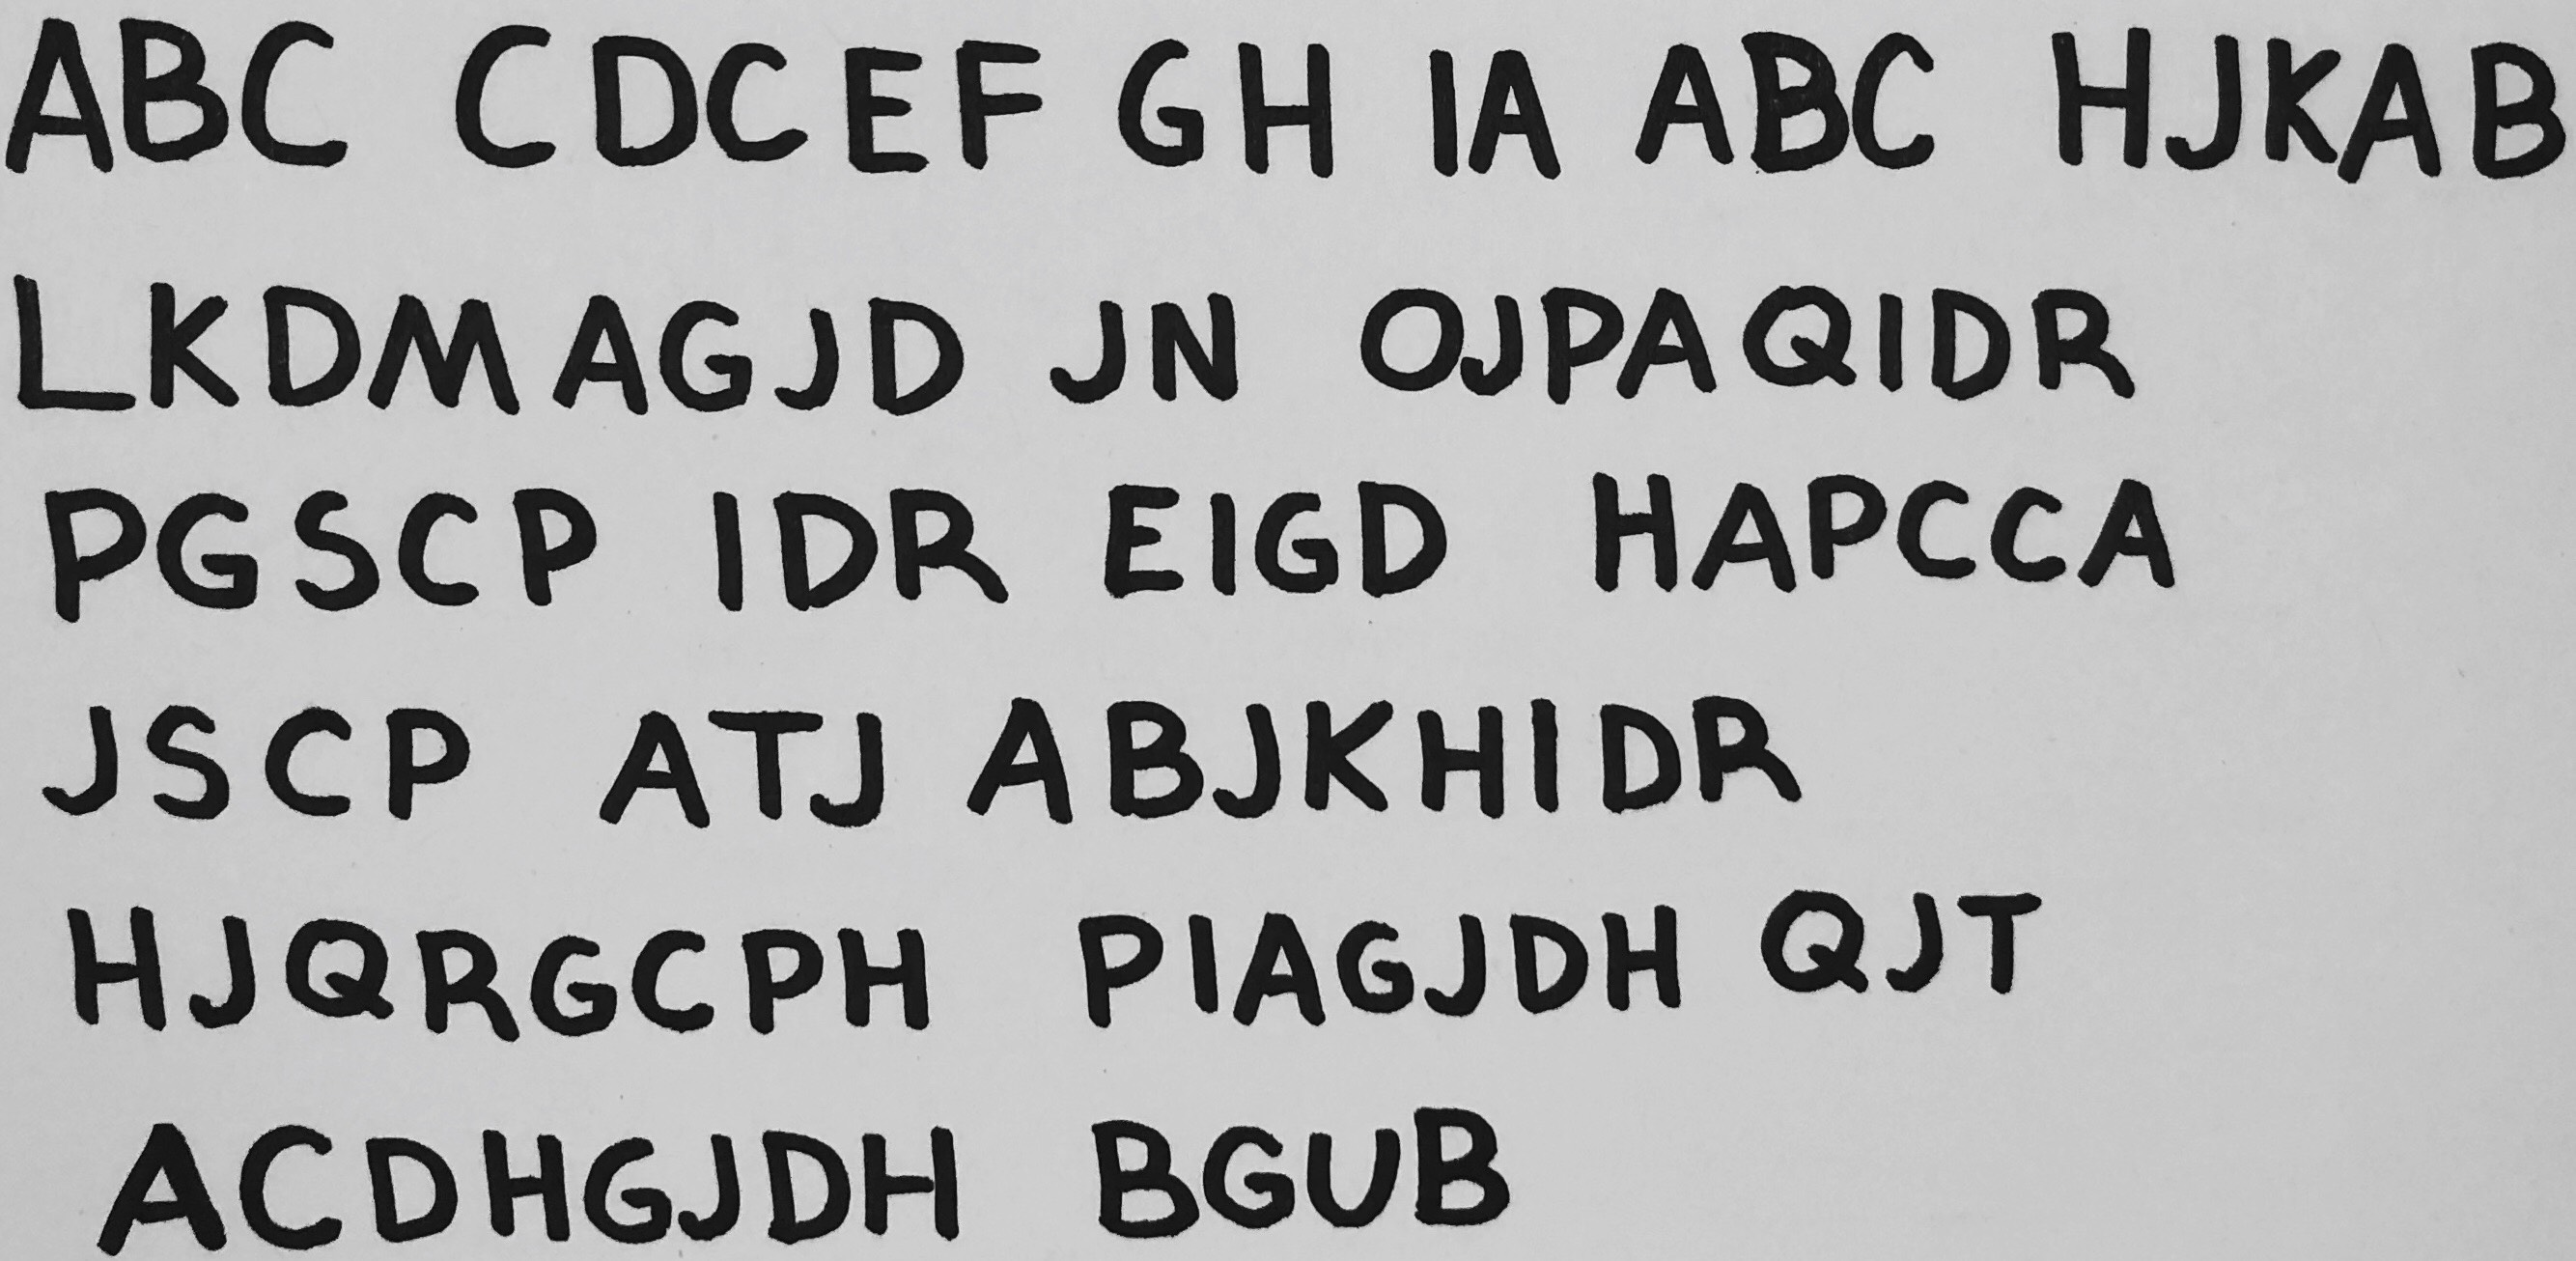 ABC CDCEF GH IA ABC HJKAB
LKDMAGJD JN OJPAQIDR
PGSCP IDR EIGD HAPCCA
JSCP ATJ ABJKHIDR
HJQRGCPH PIAGJDH QJT
ACDHGJDH BGUB